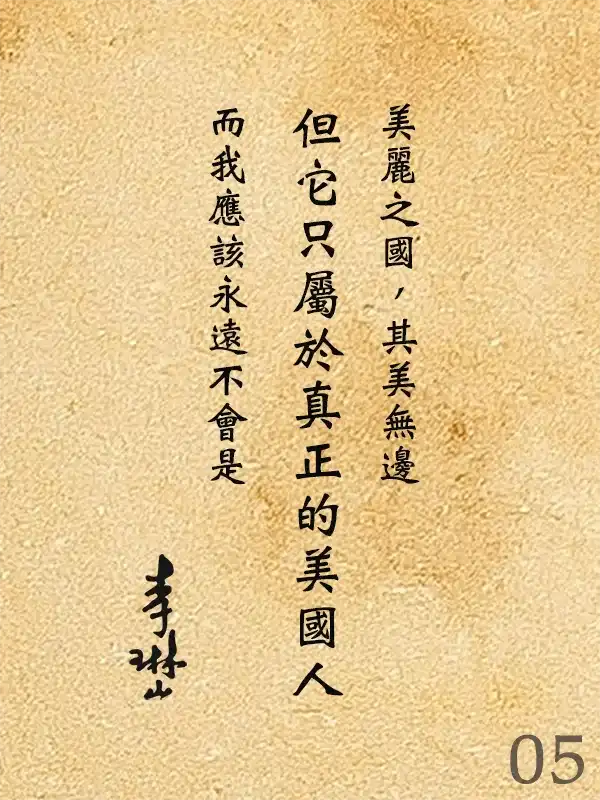 美麗之國，其美無邊
但它只屬於真正的美國人
而我應該永遠不會是
李琳山
05